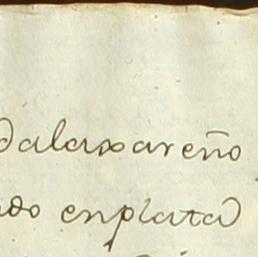 dalaxareño
ado enplata